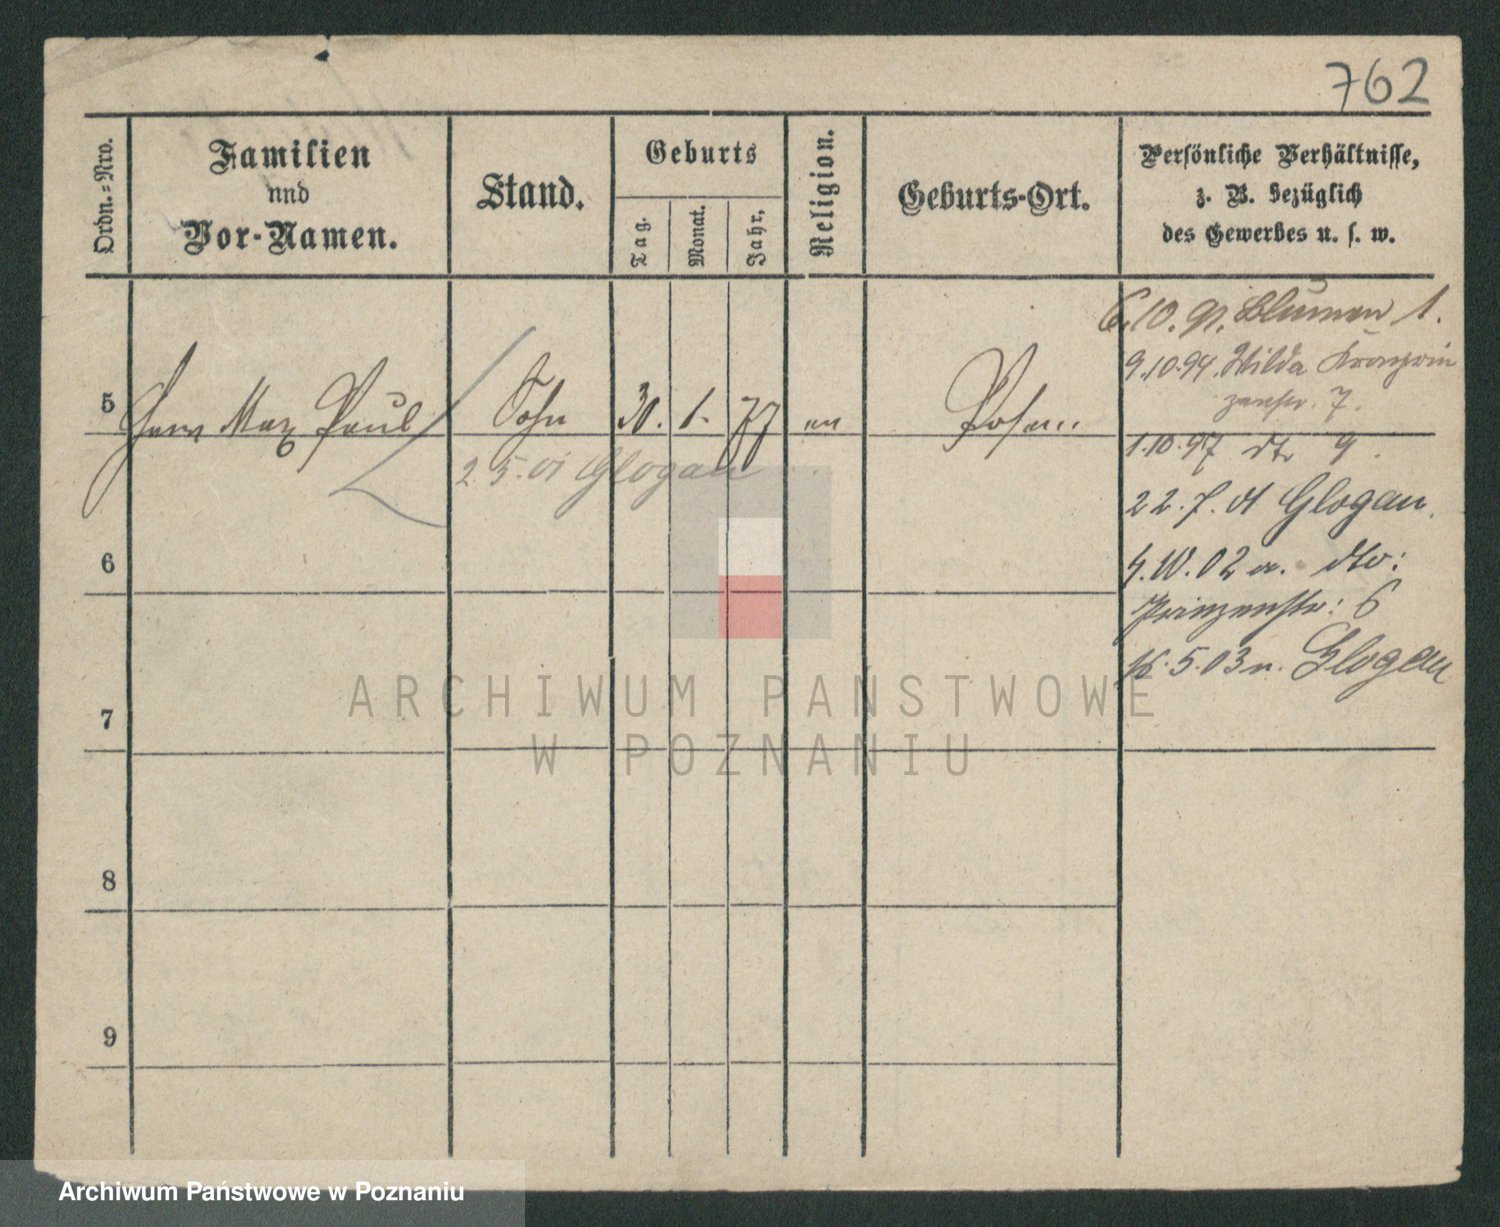 762
Ordn.=Nro.
Familien
und
Vor-Namen.
Stand.
Geburts
Tag.
Monat.
Jahr.
Religion.
Geburts-Ort.
Persönliche Verhältnisse,
z. B. bezüglich
des Gewerbes u. s. w.
5
Max Paul
Sohn
30.
1.
77
Posen
2.5.01 Glogau
6.10.91. Blumen 1.
9.10.94. Wilda Kronprin
zenstr. 7.
1.10.97 dto 9.
22.7.01 Glogau.
4.10.02 n. dto:
Prinzenstr: 6
5.03 n. Glogau
6
7
8
9
ARCHIWUM PAŃSTWOWE
W POZNANIU
Archiwum Państwowe w Poznaniu